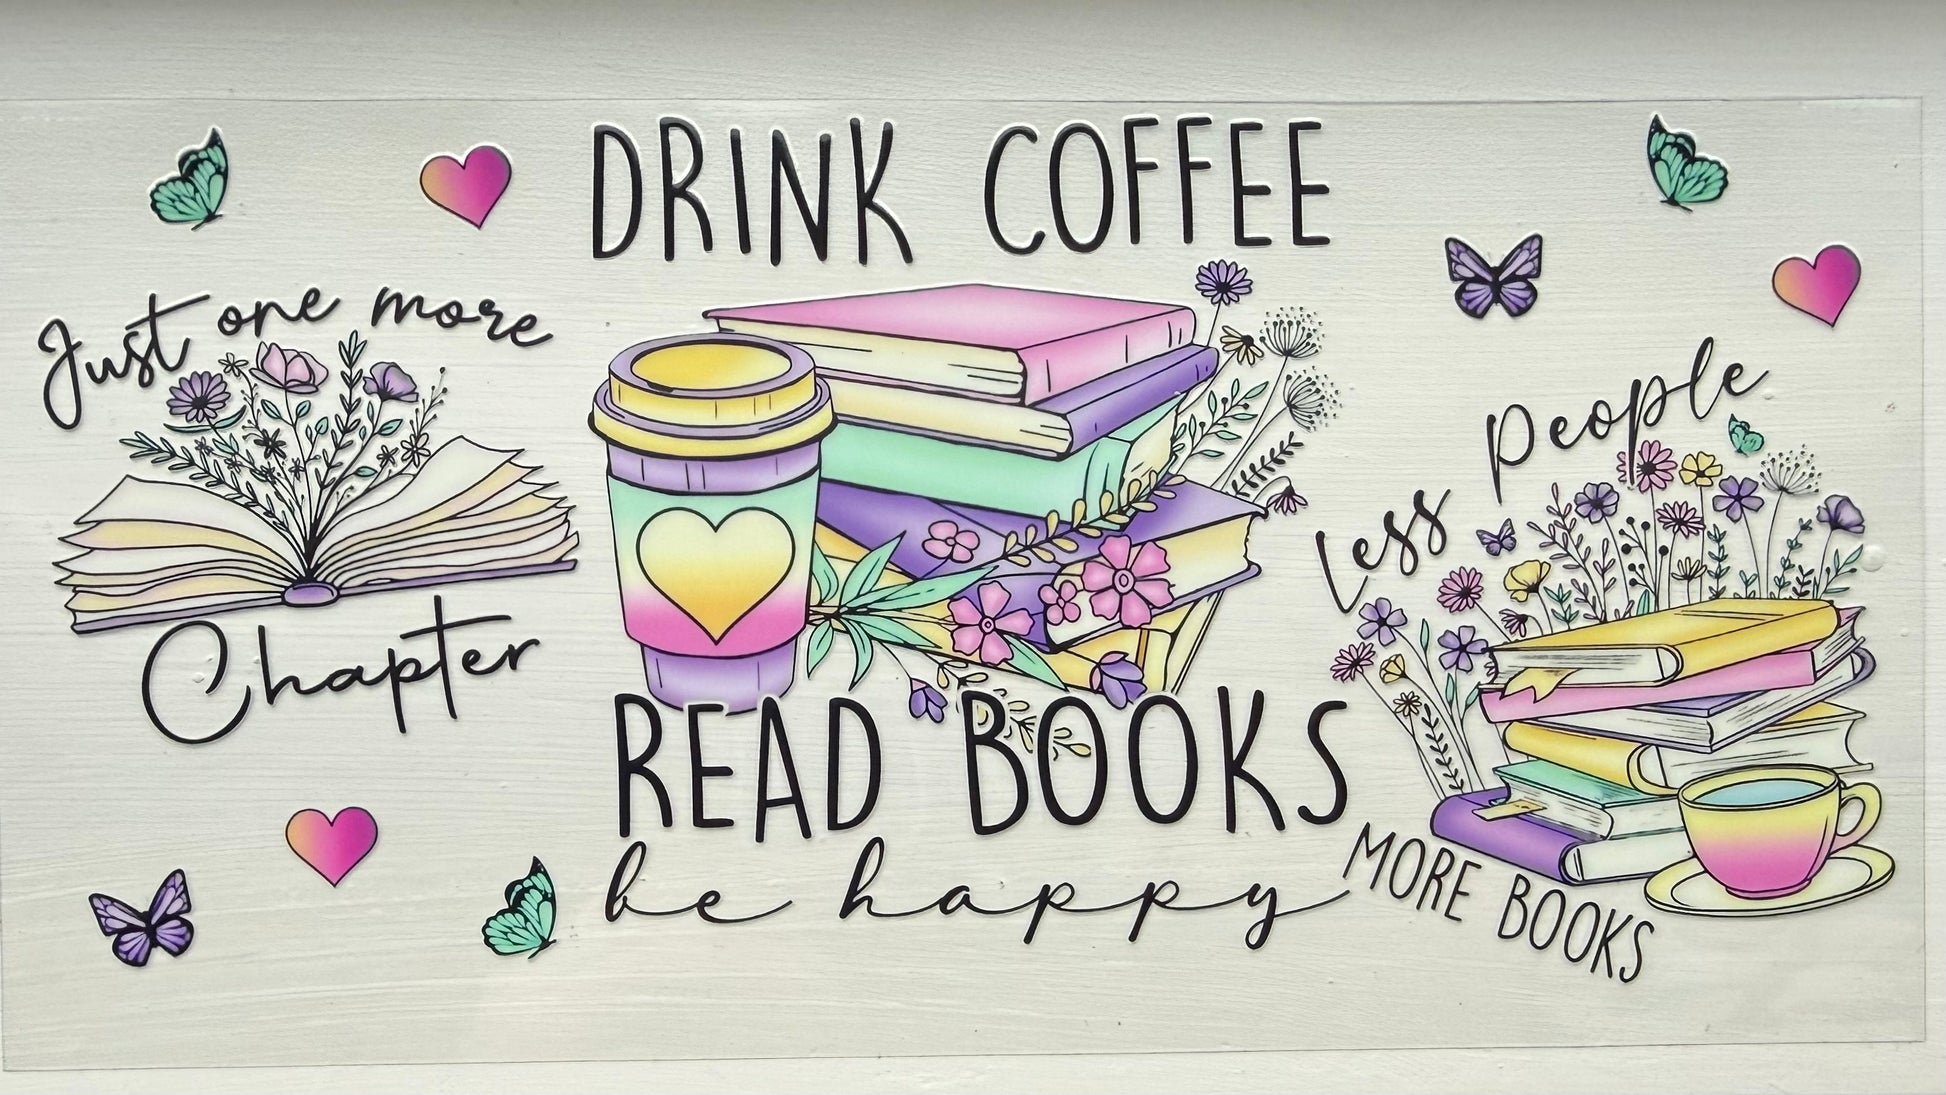 Just one more
Chapter
DRINK COFFEE
READ BOOKS
be happy
Less People
MORE BOOKS